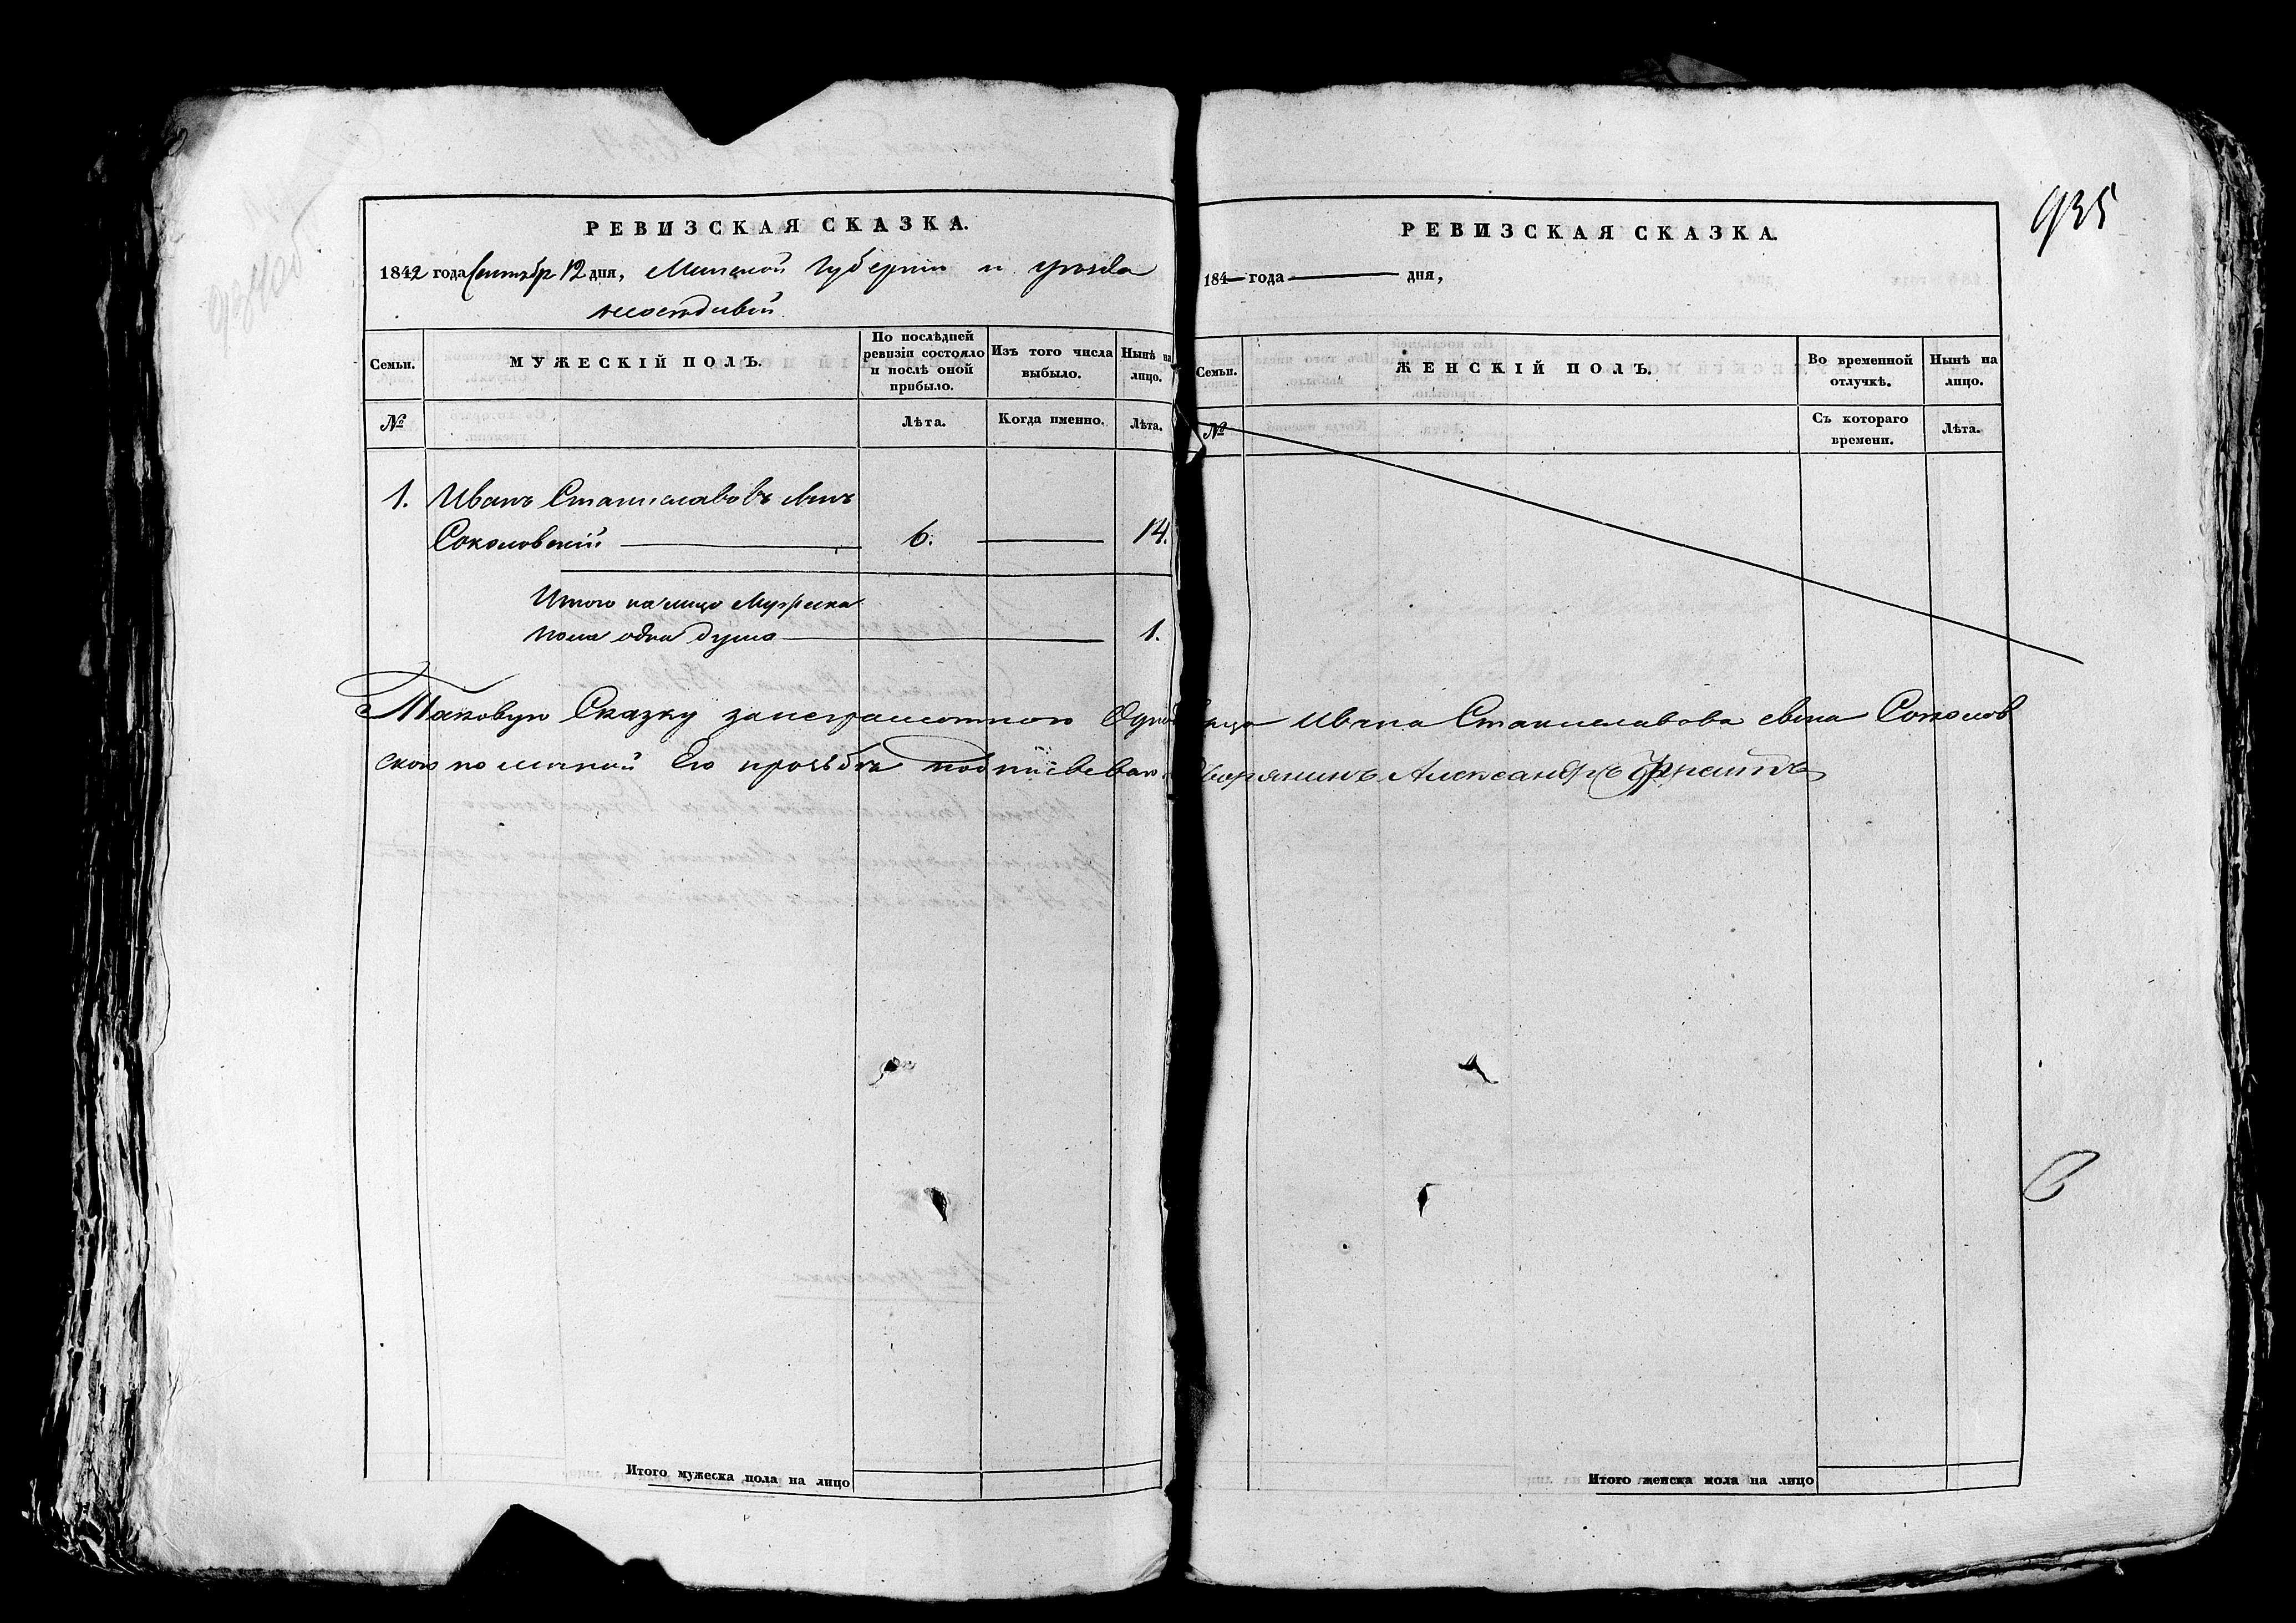 935
РЕВИЗСКАЯ СКАЗКА.
1842 года Сентябр 12 дня, Минской Губернии и уезда
Семьи. МУЖЕСКІЙ ПОЛЪ. По послѣдней ревизіи состояло и послѣ оной прибыло. Изъ того числа выбыло. Нынѣ на лицо.
№ Лѣта. Когда именно. Лѣта.
1. Иванъ Станиславовъ Сынъ
Соколовскій 6. 14.
Итого на лицо Мужеска
пола одна душа 1.
РЕВИЗСКАЯ СКАЗКА.
184 года дня,
Семьи. ЖЕНСКІЙ ПОЛЪ. Во временной отлучкѣ. Нынѣ на лицо.
№ Съ котораго времени. Лѣта.
Таковую Сказку занеграмотного Ивана Станиславова Сына Соколов
ского по личной Его прозьбѣ Дворянинъ Александръ
Итого мужеска пола на лицо
Итого женска пола на лицо